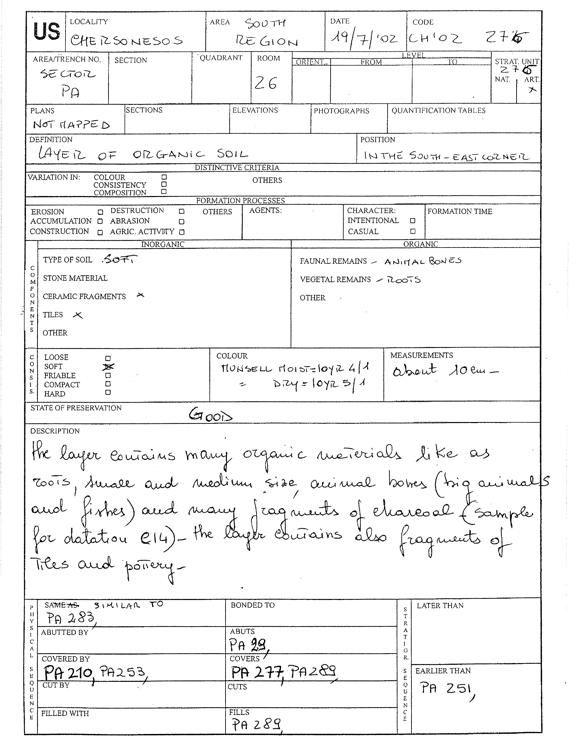 US LOCALITY CHERSONESOS AREA SOUTH REGION DATE 19/7/'02 CODE CH'02 276
AREA/TRENCH NO. SECTOR PA SECTION QUADRANT ROOM 26 LEVEL ORIENT. FROM TO STRAT. UNIT 276 NAT. ART. x
PLANS NOT MAPPED SECTIONS ELEVATIONS PHOTOGRAPHS QUANTIFICATION TABLES
DEFINITION LAYER OF ORGANIC SOIL POSITION IN THE SOUTH-EAST CORNER
DISTINCTIVE CRITERIA
VARIATION IN: COLOUR □ OTHERS
CONSISTENCY □
COMPOSITION □
FORMATION PROCESSES
EROSION □ DESTRUCTION □ OTHERS AGENTS: CHARACTER: FORMATION TIME
ACCUMULATION □ ABRASION □ INTENTIONAL □
CONSTRUCTION □ AGRIC. ACTIVITY □ CASUAL □
COMPONENTS
INORGANIC
TYPE OF SOIL SOFT
STONE MATERIAL
CERAMIC FRAGMENTS x
TILES x
OTHER
ORGANIC
FAUNAL REMAINS - ANIMAL BONES
VEGETAL REMAINS - ROOTS
OTHER
CONSIS.
LOOSE □
SOFT x
FRIABLE □
COMPACT □
HARD □
COLOUR
MUNSELL MOIST=10YR 4/1
" DRY=10YR 5/1
MEASUREMENTS
about 10 cm-
STATE OF PRESERVATION GOOD
DESCRIPTION
the layer contains many organic materials like as
roots, small and medium size animal bones (big animals
and fishes) and many fragments of charcoal (sample
for datation C14)- the layer contains also fragments of
tiles and pottery-
PHYSICAL SEQUENCE
SAME AS SIMILAR TO
PA 283,
BONDED TO
ABUTTED BY
ABUTS
PA 29,
COVERED BY
PA 210, PA253,
COVERS
PA 277, PA289,
CUT BY
CUTS
FILLED WITH
FILLS
PA 289,
STRATIGR. SEQUENCE
LATER THAN
EARLIER THAN
PA 251,